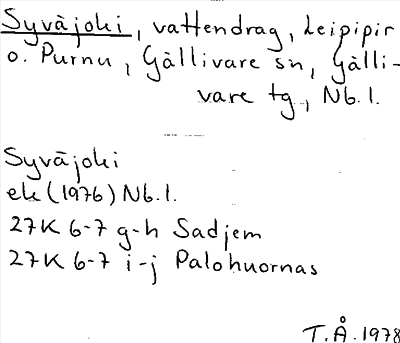 Syväjoki, vattendrag, Leipipir
o. Purnu, Gällivare sn, Gälli-
vare tg., Nb. l.
Syväjoki
ek (1976) Nb. l.
27K 6-7 g-h Sadjem
27K 6-7 i-j Palohuornas
T.Å. 1978